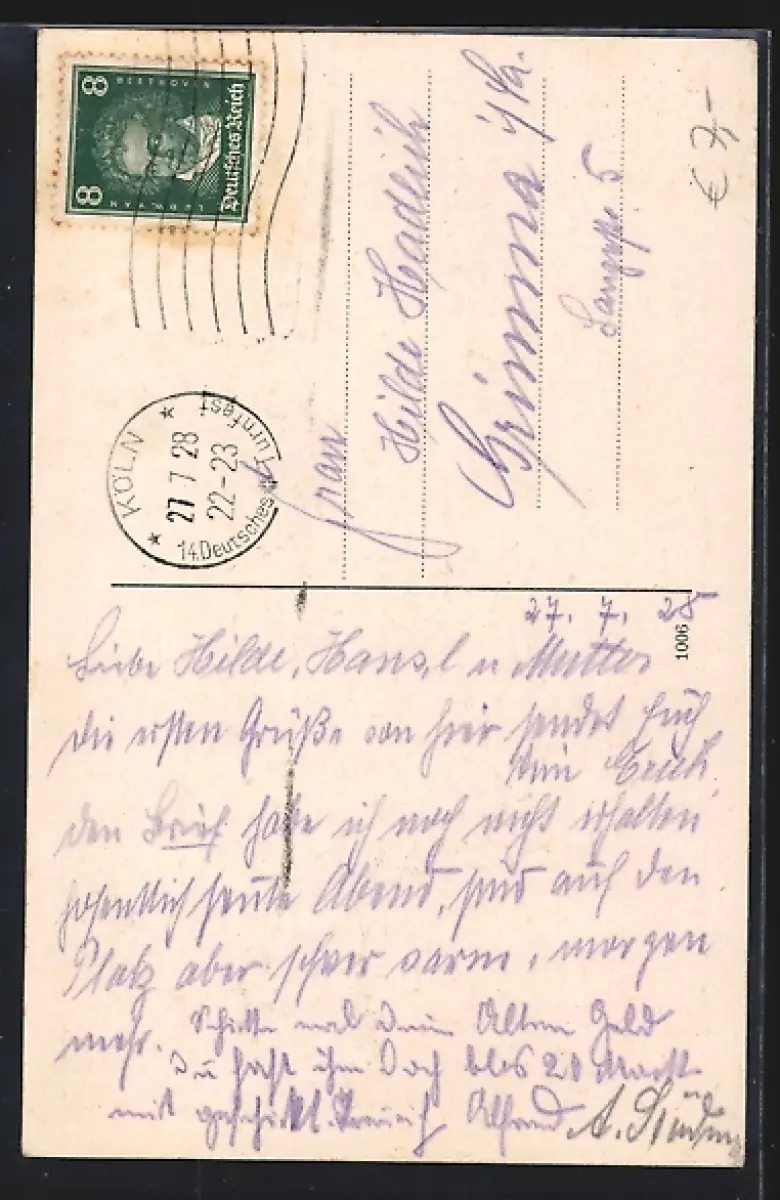 8 8
LUDW. VAN BEETHOVEN
Deutsches Reich
KÖLN
27 7 28
22-23
14. Deutsches Turnfest
€ 7,-
Frau
Hilde Hadlich
Grimma i/Sa.
Langestr. 5
1006
27. 7. 28
Liebe Hilde, Hansel u Mutter
die ersten Grüße von hier sendet Euch
Dein Erich
den Brief habe ich noch nicht erhalten
hoffentlich heute Abend, sind auf den
Platz aber schwer warm, morgen
mehr. Schicke mal Dein Alten Geld
Du hast ihm doch blos 20 Mark
mit geschickt. Alfred